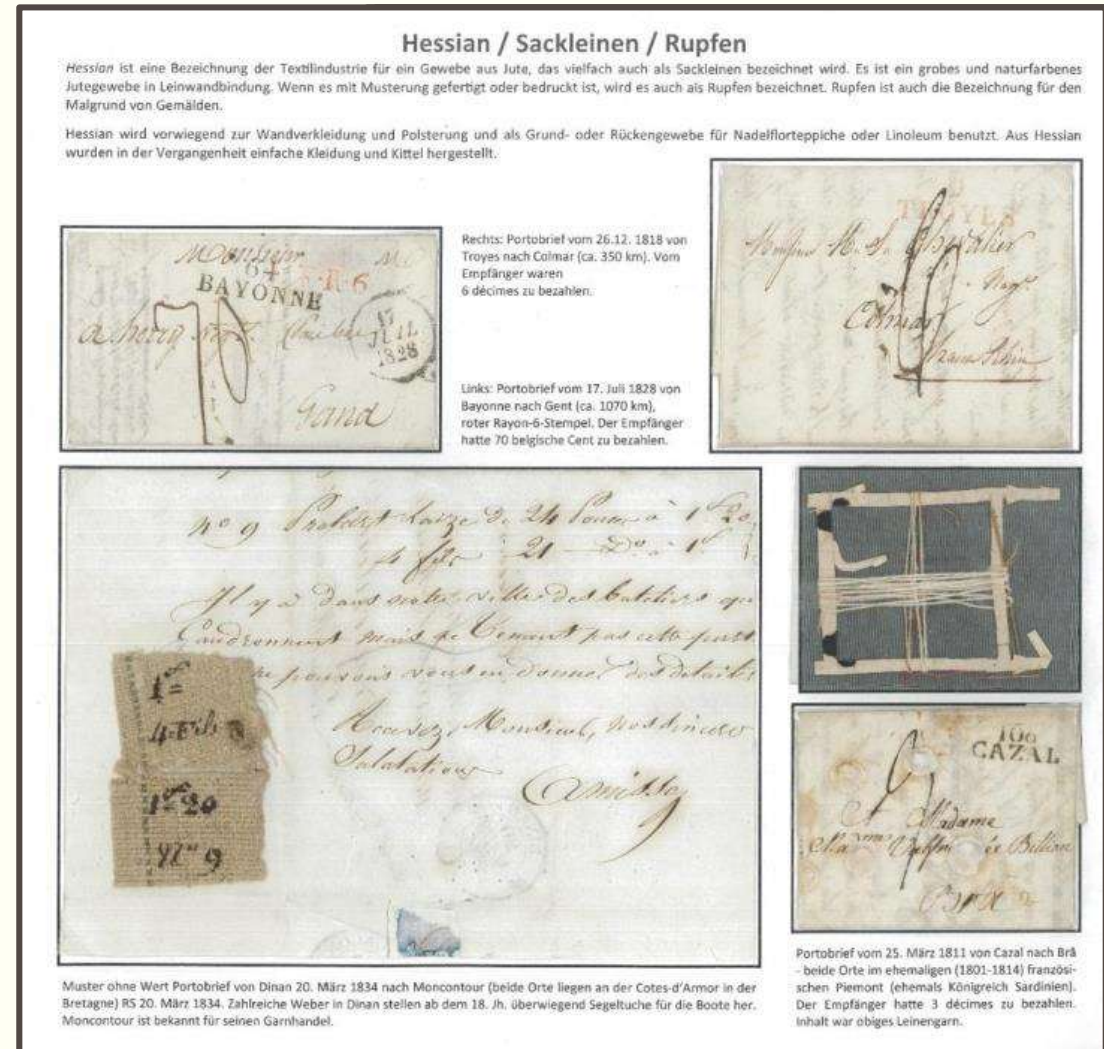 Hessian / Sackleinen / Rupfen
Hessian ist eine Bezeichnung der Textilindustrie für ein Gewebe aus Jute, das vielfach auch als Sackleinen bezeichnet wird. Es ist ein grobes und naturfarbenes
Jutegewebe in Leinwandbindung. Wenn es mit Musterung gefertigt oder bedruckt ist, wird es auch als Rupfen bezeichnet. Rupfen ist auch die Bezeichnung für den
Malgrund von Gemälden.
Hessian wird vorwiegend zur Wandverkleidung und Polsterung und als Grund- oder Rückengewebe für Nadelflorteppiche oder Linoleum benutzt. Aus Hessian
wurden in der Vergangenheit einfache Kleidung und Kittel hergestellt.
Monsieur
64
BAYONNE
17
JUIL
1828
Gand
Rechts: Portobrief vom 26.12. 1818 von
Troyes nach Colmar (ca. 350 km). Vom
Empfänger waren
6 décimes zu bezahlen.
Links: Portobrief vom 17. Juli 1828 von
Bayonne nach Gent (ca. 1070 km),
roter Rayon-6-Stempel. Der Empfänger
hatte 70 belgische Cent zu bezahlen.
TROYES
Monsieur
Colmar
nº 9 24 à 1 20
4 fils à 21 à 1
Il y a dans notre ville des
mais ne pas cette
pouvons vous en donner des détails
Monsieur, nos sincères
Salutations
4 fils
20
106
CAZAL
Madame
Muster ohne Wert Portobrief von Dinan 20. März 1834 nach Moncontour (beide Orte liegen an der Cotes-d'Armor in der
Bretagne) RS 20. März 1834. Zahlreiche Weber in Dinan stellen ab dem 18. Jh. überwiegend Segeltuche für die Boote her.
Moncontour ist bekannt für seinen Garnhandel.
Portobrief vom 25. März 1811 von Cazal nach Brà
- beide Orte im ehemaligen (1801-1814) französi-
schen Piemont (ehemals Königreich Sardinien).
Der Empfänger hatte 3 décimes zu bezahlen.
Inhalt war obiges Leinengarn.